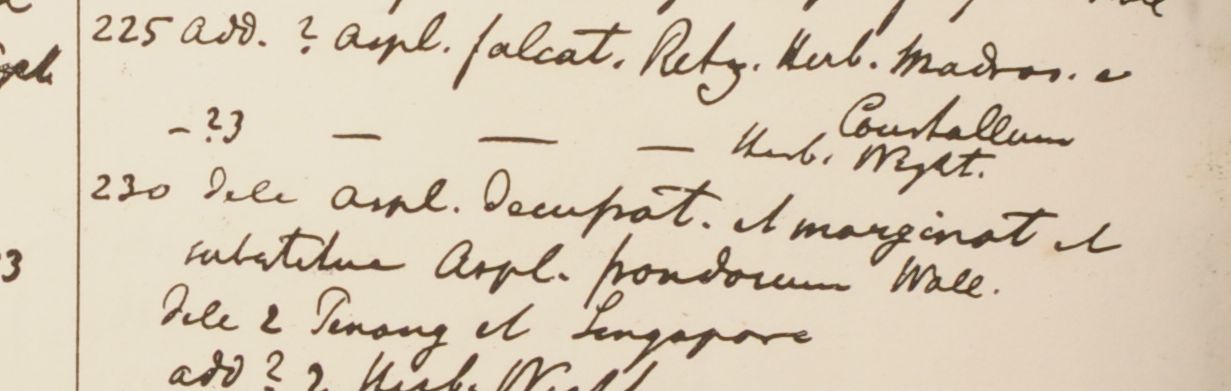 225 add. ? Aspl. falcat. Retz. Herb. Madras. e
Courtallum
- ?3 — — — Herb. Wight.
230 dele Aspl. Decussat. et marginat et
substitue Aspl. frondosum Wall.
dele 2 Penang et Singapore
add ? 2 Herb. Wight